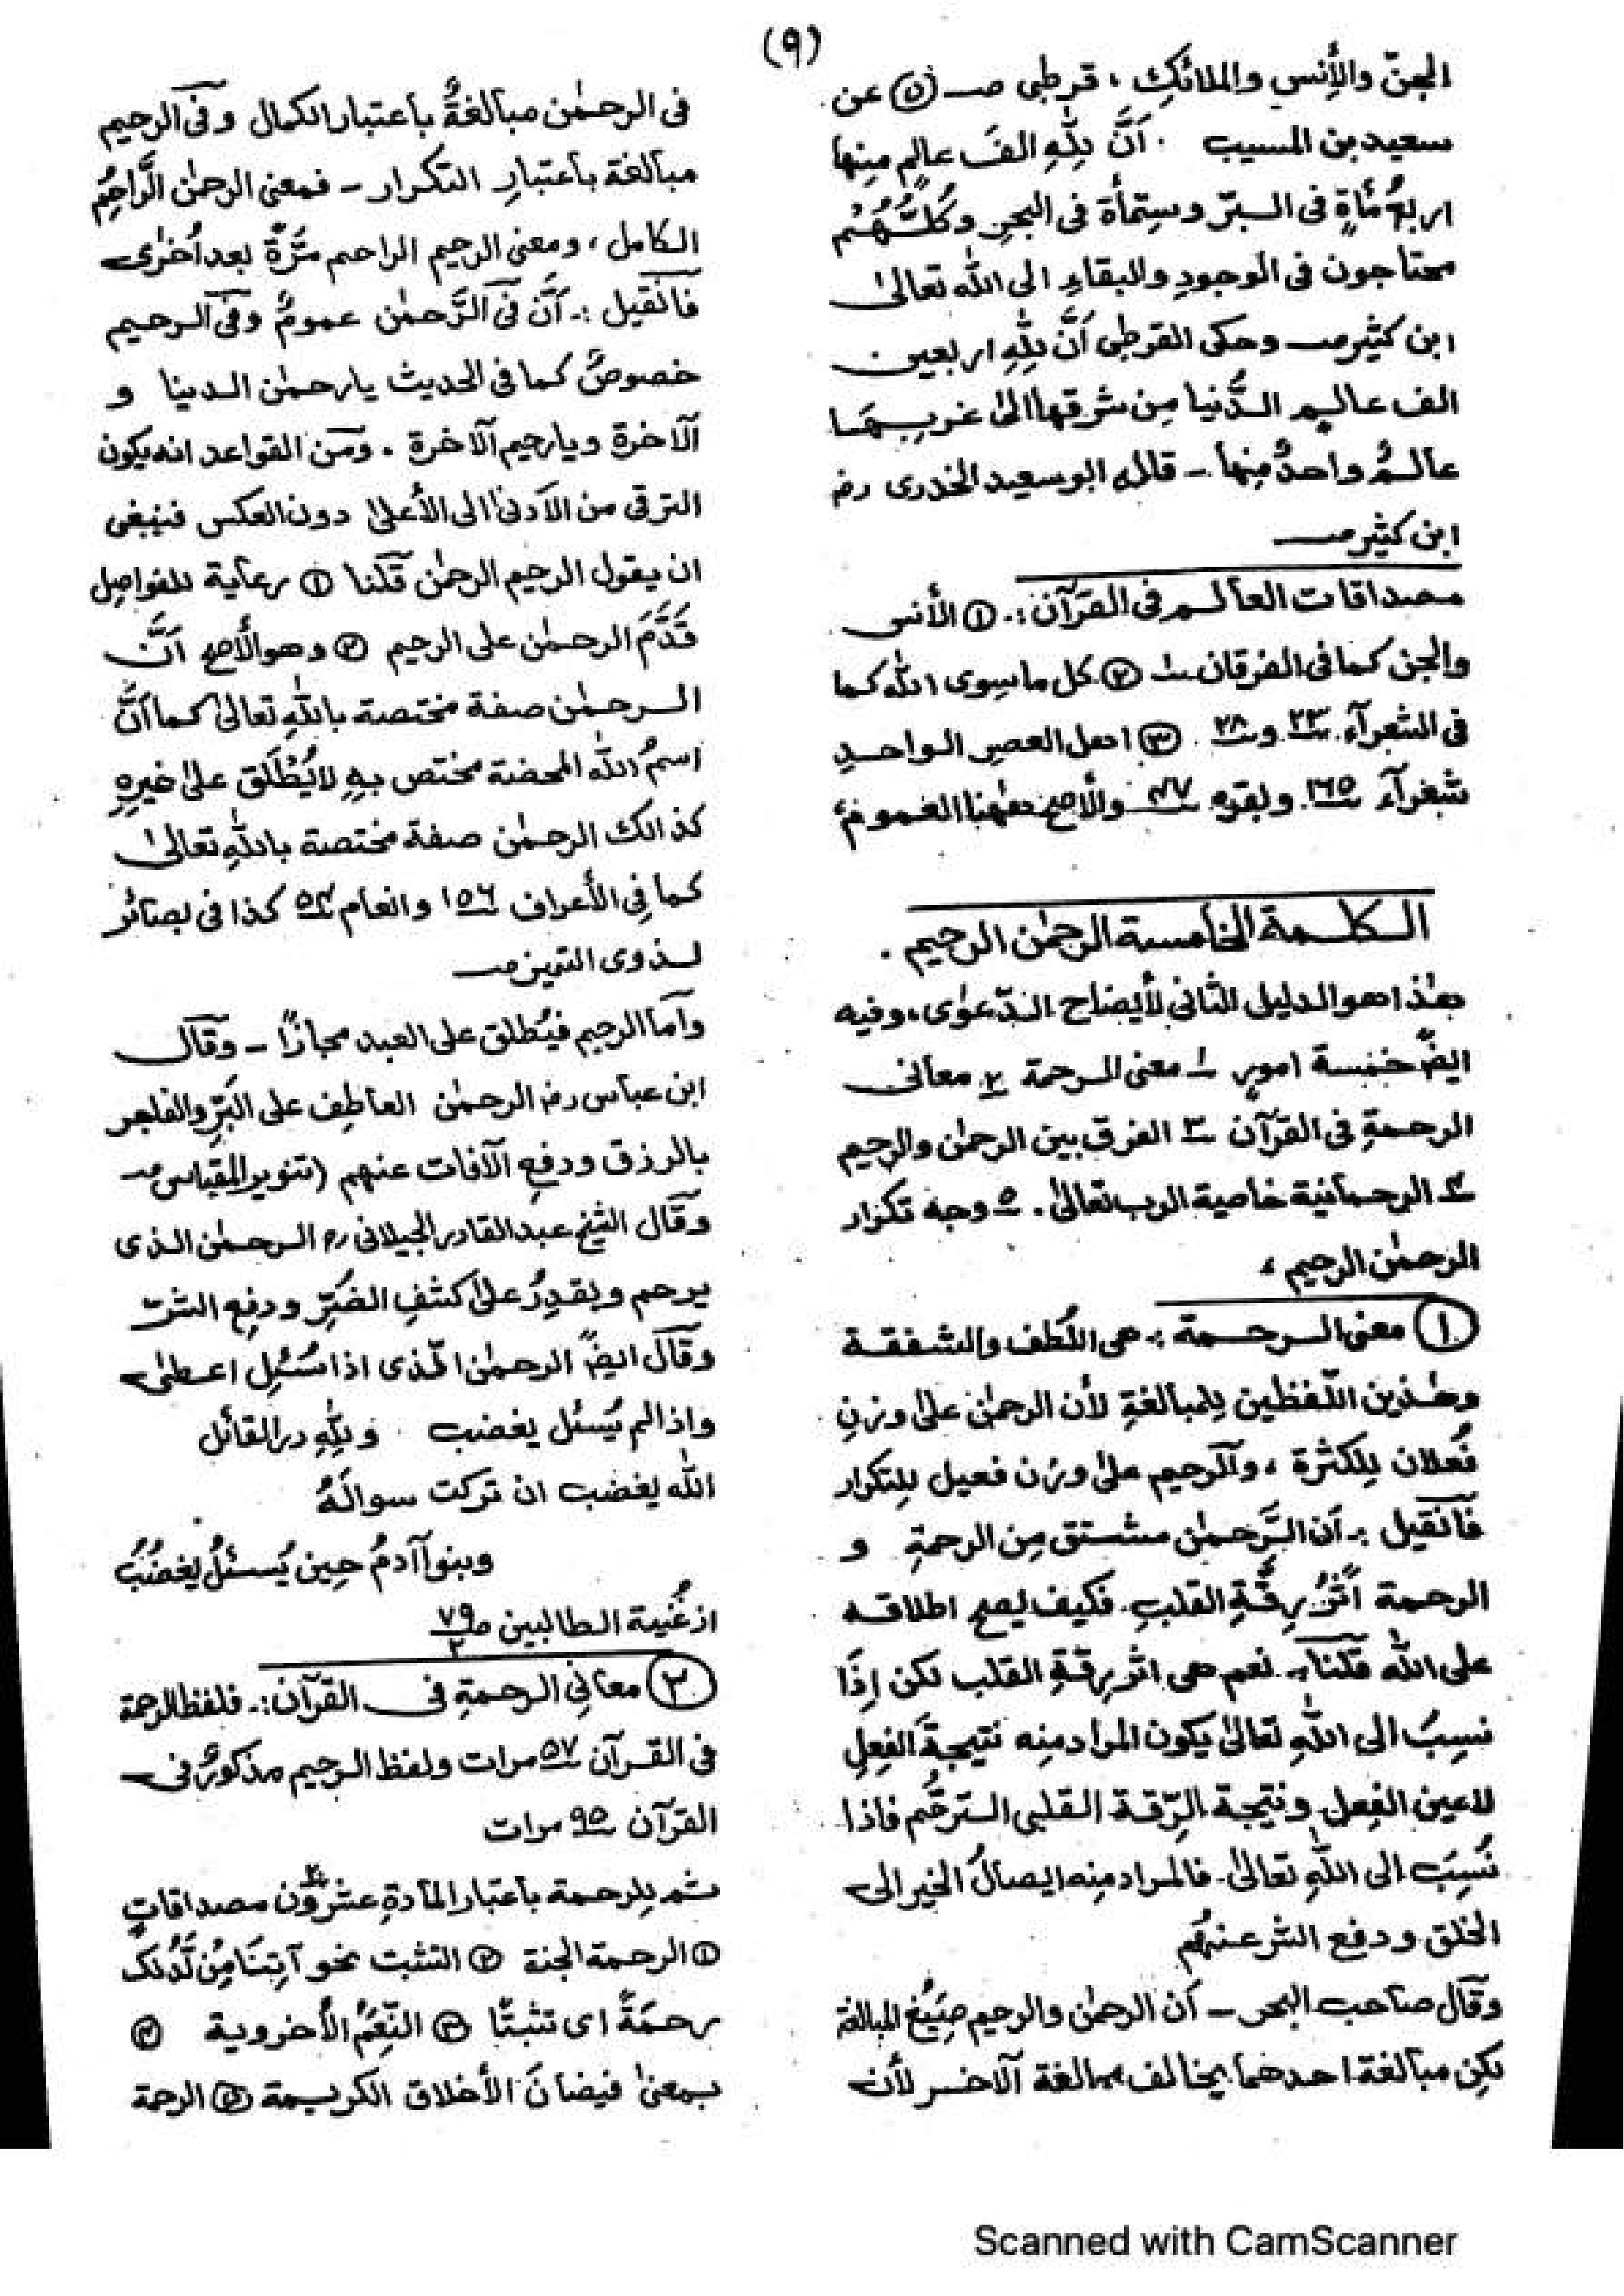 (٩)
الجنّ والأنس والملائك ، قرطبی صـ ⑤ عن
سعيد بن المسيب . اَنَّ لِلّٰهِ الفَ عالمٍ مِنها
اربعُ مُأةٍ فى الـبرّ وستمأة فى البحرِ وكُلُّـهُمْ
محتاجون فى الوجودِ والبقاءِ الى الله تعالىٰ
ابن كثيرصـ وحكى القرطبى اَنَّ لِلّٰهِ اربعين
الف عالمٍ الـدُّنيا مِن شرقها الىٰ غربِـهَـا
عالـمٌ واحدٌ مِنها ـ قاله ابوسعيد الخدرى رض
ابن كثيرصـ
مصداقات العالـم فى القرآن :ـ ① الأنس
والجن كما فى الفرقان ١ ② كل ماسِوى الله كما
فى الشعرآء ٢٣ و ٢٨ . ③ اهل العصرِ الـواحـدِ
شعرآء ١٦٥ وبقره ٤٧ والأصح ههنا العموم
الـكلـمة الخامسة الرحمٰن الرحيم .
هٰذا هو الدليل الثانى لأيضاح الـدّعوٰى، وفيه
ايضً خمسة امورٍ ١ معنى الـرحمة ٢ معانى
الرحمةِ فى القرآن ٣ الفرق بين الرحمٰن والرحيم
٤ الرحمانية خاصية الرب تعالىٰ . ٥ وجه تكرار
الرحمٰن الرحيم ،
① معنى الـرحـمـة :ـ هى اللُطف والشفقـة
وهٰذين اللّفظين لِلمبالغةِ لأن الرحمٰن علىٰ وزنِ
فُعلان لِلكثرة ، وآلرحيم علىٰ وزن فعيل لِلتكرار
فآنقيل :ـ أن الـرَّحمٰن مشـتق مِن الرحمةِ و
الرحمة اَثرُ رِقَّةِ القلبِ . فكيف يصح اطلاقـه
على الله قلنا ـ نعم هى اثر رِقـةِ القلب لكن إِذَا
نسِبَ الى اللّٰهِ تعالىٰ يكون المراد مِنه نتيجةَ الفِعلِ
لاعين الفِعل ونتيجة الرِّقـة القلبى الـترحُّم فاذا
نُسِبَ الى اللّٰهِ تعالىٰ . فالمراد مِنه ايصالُ الخير الى
الخلق ودفع الشر عـنهُم
وقال صاحب البحر ـ اَن الرحمٰن والرحيم صِيَغُ المبالغة
لكِن مبالغة احدهما يخالف مبالغة آلاخـر لأن
فى الرحمٰن مبالغةٌ بأعتبار الكمال وفى الرحيم
مبالغة بأعتبارِ التكرار ـ فمعنى الرحمٰن الرَّاحِمُ
الكامل ، ومعنى الرحيم الراحم مَرَّةً بعد اُخرٰى
فآنقيل :ـ اَنَّ فى الرَّحمٰن عمومٌ وفى الـرحيم
خصوصٌ كما فى الحديث يارحمٰن الـدنيا و
آلاخرة ويارحيم آلاخرة . ومن القواعد انه يكون
الترقى من الاَدنىٰ الى الأعلىٰ دون العكس فينبغى
ان يقول الرحيم الرحمٰن قلنا ① رعاية للفواصِل
قَدَّمَ الرحـمٰن على الرحيم ② وهو الأصح اَنَّ
الـرحـمٰن صفة مختصة باللّٰهِ تعالىٰ كـما اَنَّ
اِسمُ الله المحضة مختص بهٖ لايُطْلَق علىٰ غيرِهٖ
كذالك الرحمٰن صفة مختصة باللّٰهِ تعالىٰ
كـما فِى الأعراف ١٥٦ وانعام ٥٤ كذا فى بصائر
لـذوى التميز صـ
وآما الرحيم فيُطلق على العبد مجازًا ـ وقآل
ابن عباس رض الرحمٰن العاطِف على البَرِّ والفاجر
بالرزق ودفع الآفات عنهم (تنوير المقباس صـ
وقآل الشيخ عبد القادر الجيلانى رح الـرحـمٰن الـذى
يرحم ويقدِرُ علىٰ كشفِ الضُرِّ ودفِع الشرّ
وقآل ايضً الرحمٰن الّذى اذا سُئِل اعـطىٰ
واذا لم يُسئل يغضب . ولِلّٰهِ درالقائل
الله يغضب ان تركت سوالَهُ
وبنوآ آدمُ حِين يُسئلُ يغضَبُ
ازغُنية الـطالبين صـ ٧٩/٢
② معانِى الرحمةِ فى القرآن :ـ فلفظ الرحمة
فى القـرآن ٥٧ مرات ولفظ الـرحيم مذكورٌ فى
القرآن ٩٥ مرات
ثـم لِلرحمة بأعتبار المآدةِ عشرون مصداقاتٍ
① الرحمة الجنة ② التثبت نحو آتِنَا مِن لَّدُنكَ
رحمَةً اى تثبتًا ③ النِّعَمُ الأخروية ④
بـمعنىٰ فيضانَ الأخلاق الكريـمة ⑤ الرحمة
Scanned with CamScanner